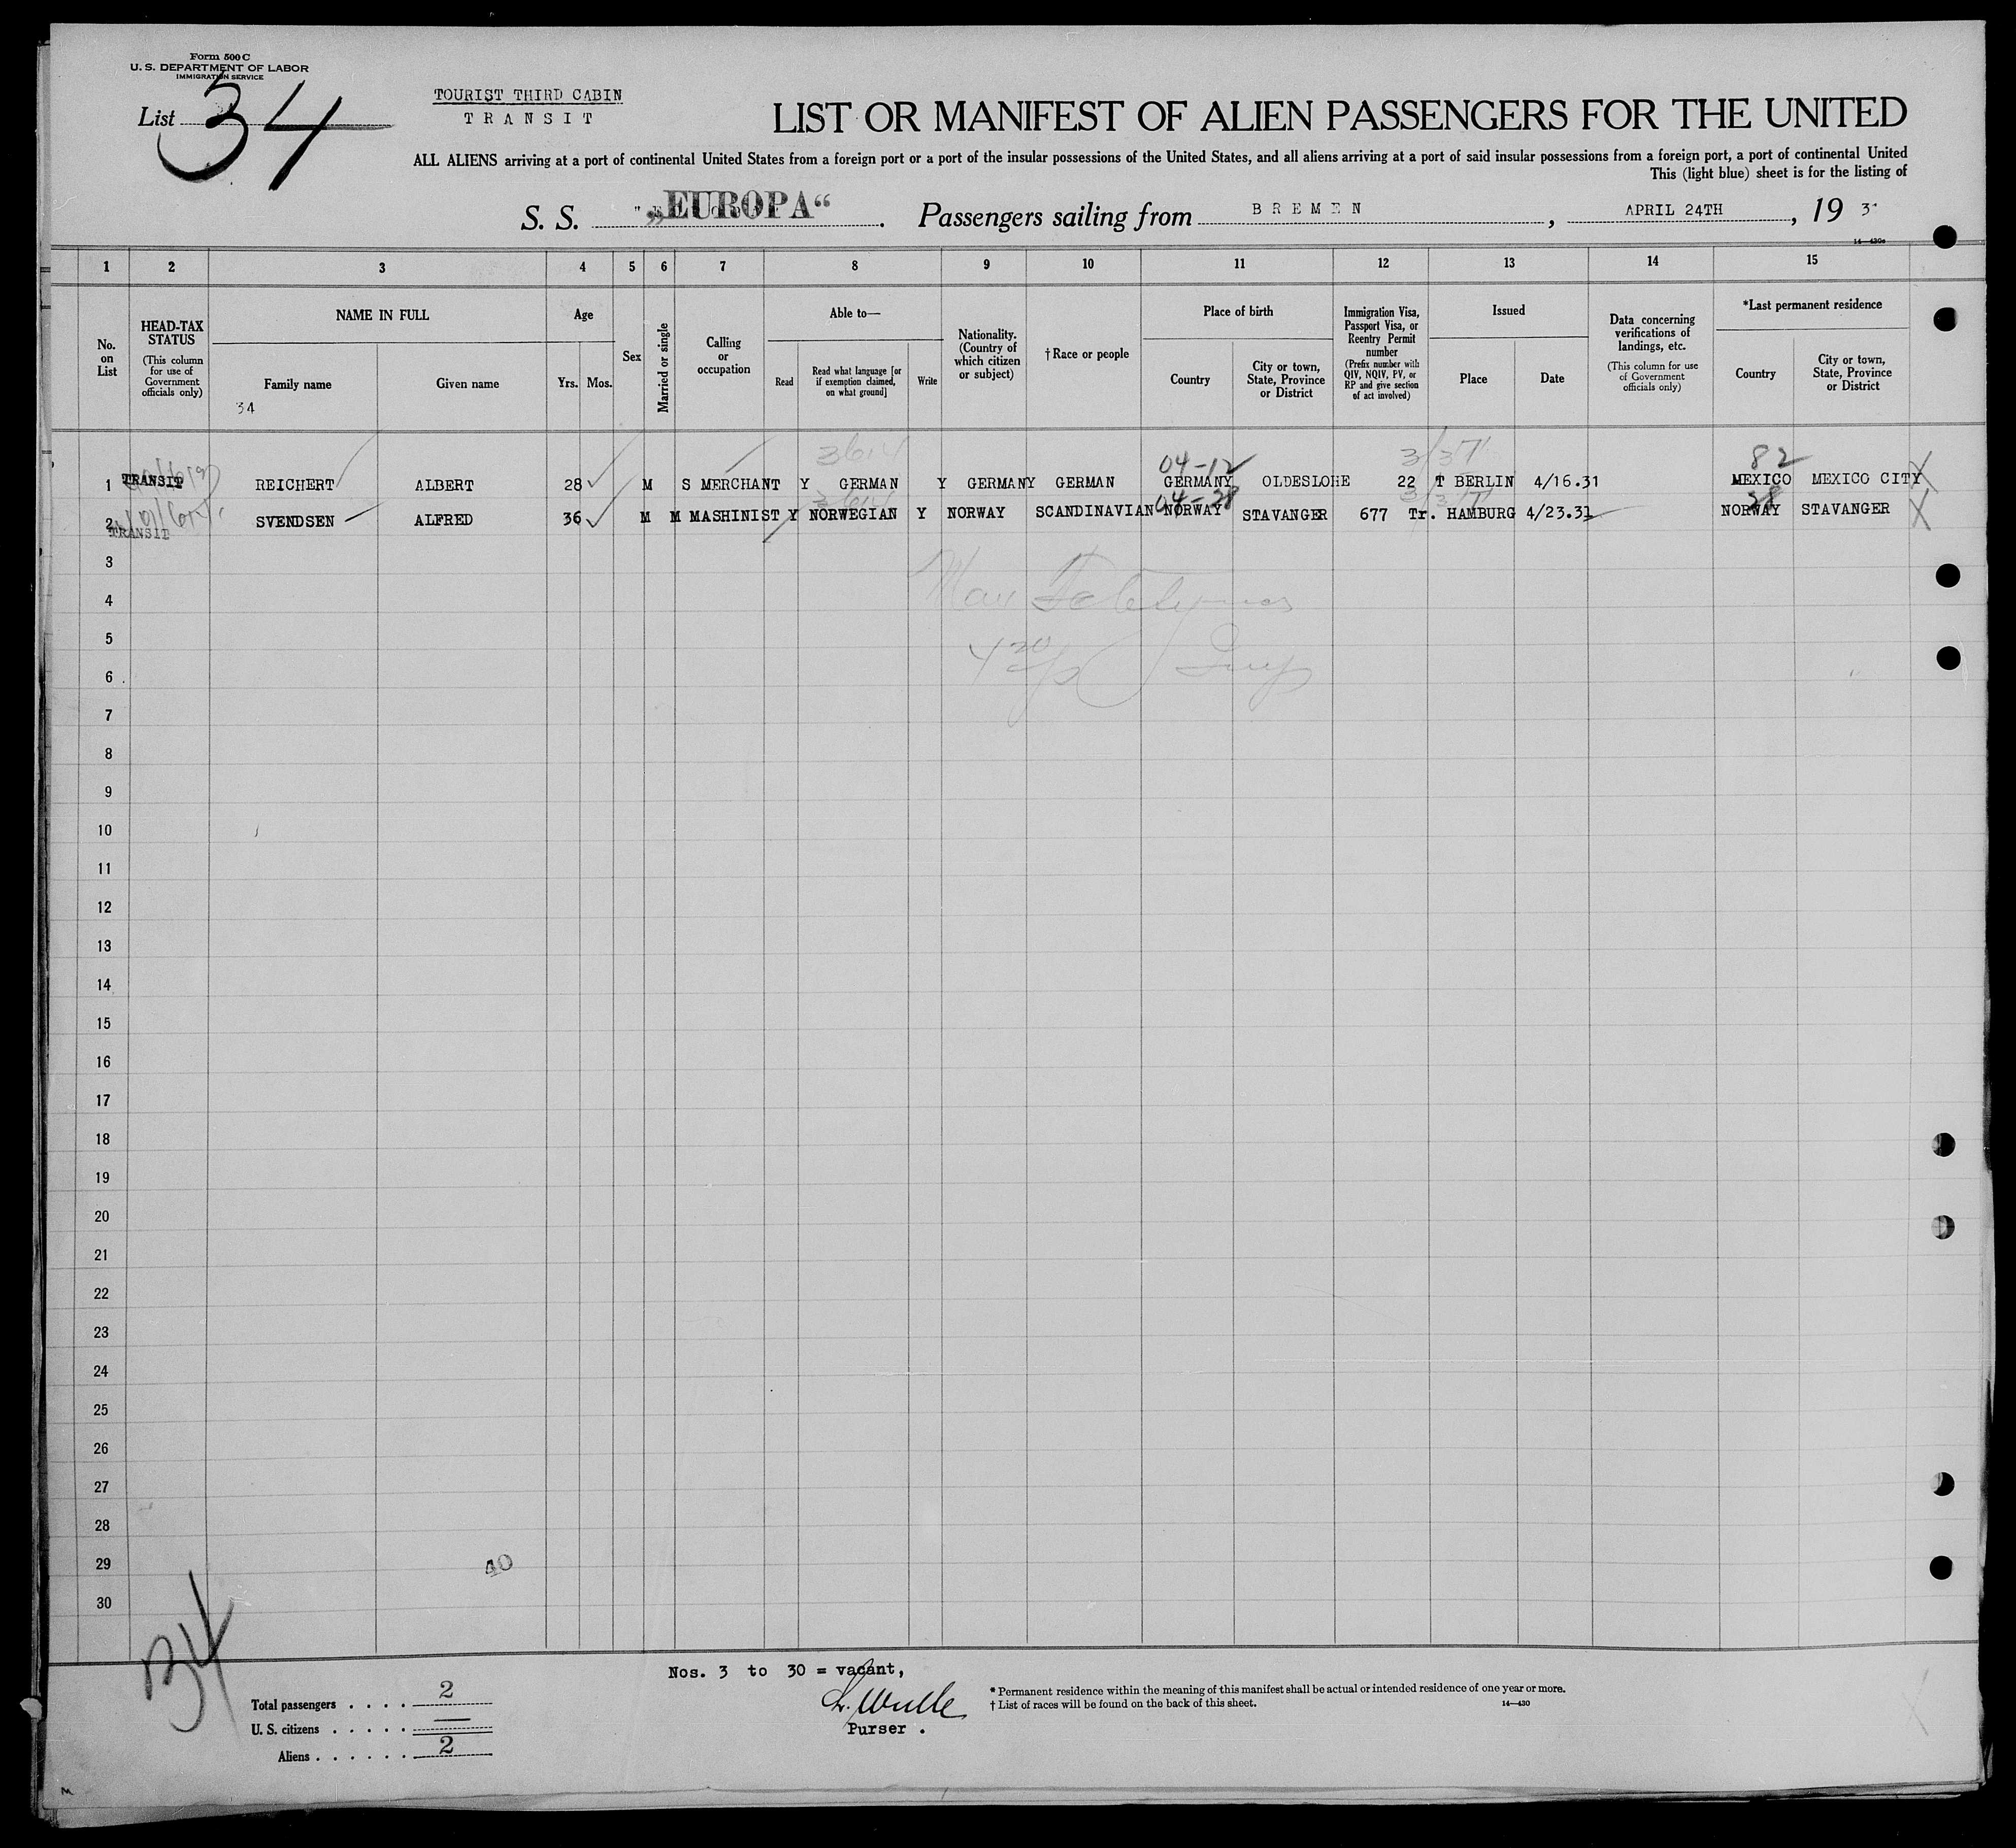 Form 500 C
U. S. DEPARTMENT OF LABOR
IMMIGRATION SERVICE
List 34
TOURIST THIRD CABIN
TRANSIT
LIST OR MANIFEST OF ALIEN PASSENGERS FOR THE UNITED
ALL ALIENS arriving at a port of continental United States from a foreign port or a port of the insular possessions of the United States, and all aliens arriving at a port of said insular possessions from a foreign port, a port of continental United
This (light blue) sheet is for the listing of
S. S. „EUROPA“. Passengers sailing from BREMEN, APRIL 24TH, 19 3
14—430c
1 2 3 4 5 6 7 8 9 10 11 12 13 14 15
No. on List
HEAD-TAX STATUS
(This column for use of Government officials only)
NAME IN FULL
Family name
34
Given name
Age
Yrs. Mos.
Sex
Married or single
Calling or occupation
Able to—
Read
Read what language [or if exemption claimed, on what ground]
Write
Nationality. (Country of which citizen or subject)
† Race or people
Place of birth
Country
City or town, State, Province or District
Immigration Visa, Passport Visa, or Reentry Permit number
(Prefix number with QIV, NQIV, PV, or RP and give section of act involved)
Issued
Place
Date
Data concerning verifications of landings, etc.
(This column for use of Government officials only)
*Last permanent residence
Country
City or town, State, Province or District
3614 3/37 04-12 82
1 TRANSIT REICHERT ALBERT 28 M S MERCHANT Y GERMAN Y GERMANY GERMAN GERMANY OLDESLOHE 22 T BERLIN 4/16.31 MEXICO MEXICO CITY
3614 04-28 28
2 TRANSIT SVENDSEN ALFRED 36 M M MASHINIST Y NORWEGIAN Y NORWAY SCANDINAVIAN NORWAY STAVANGER 677 Tr. HAMBURG 4/23.31 NORWAY STAVANGER
3
4
5
6
7
8
9
10
11
12
13
14
15
16
17
18
19
20
21
22
23
24
25
26
27
28
29 40
30
34
Nos. 3 to 30 = vacant,
Purser .
Total passengers . . . . 2
U. S. citizens . . . . . —
Aliens . . . . . . 2
* Permanent residence within the meaning of this manifest shall be actual or intended residence of one year or more.
† List of races will be found on the back of this sheet.
14—430